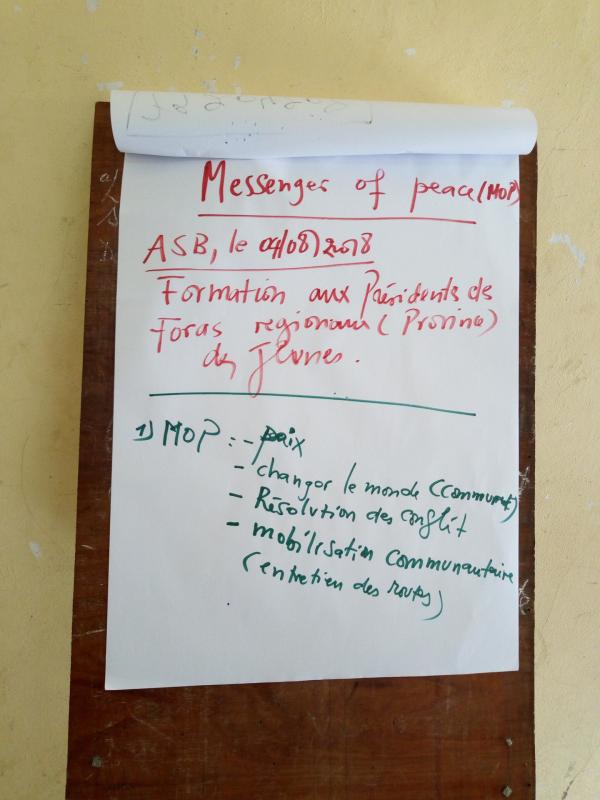 Messenges of peace (MOP)
ASB, le 04/08/2018
Formation aux Présidents des
Foras regionaux (Province)
des Jeunes.
1) MOP : - paix
- changer le monde (communaut)
- Résolution des conflit
- mobilisation communautaire
(entretien des routes)